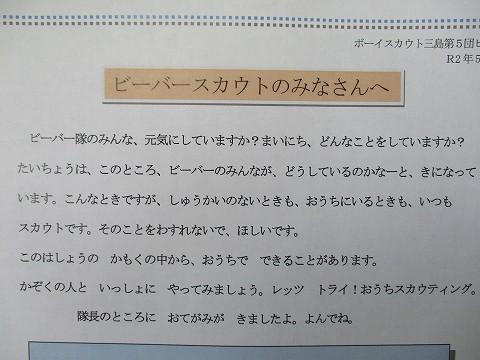 ボーイスカウト三島第５団
R２年５
ビーバースカウトのみなさんへ
ビーバー隊のみんな、元気にしていますか？まいにち、どんなことをしていますか？
たいちょうは、このところ、ビーバーのみんなが、どうしているのかなーと、きになって
います。こんなときですが、しゅうかいのないときも、おうちにいるときも、いつも
スカウトです。そのことをわすれないで、ほしいです。
このはしょうの　かもくの中から、おうちで　できることがあります。
かぞくの人と　いっしょに　やってみましょう。レッツ　トライ！おうちスカウティング。
隊長のところに　おてがみが　きましたよ。よんでね。